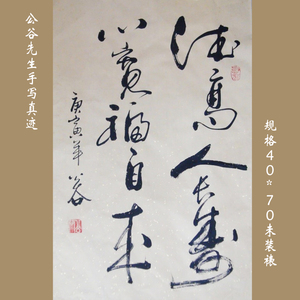 公谷先生手写真迹
德高人长寿
心宽福自来
庚寅年 公谷
规格40☆70未装裱